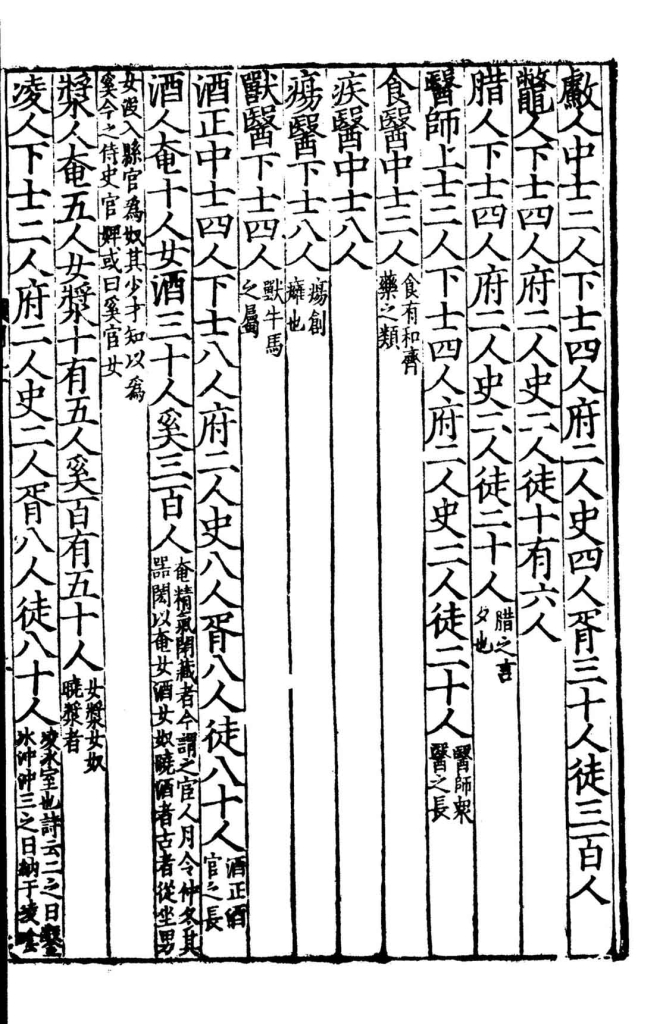 䱷人中士二人下士四人府二人史四人胥三十人徒三百人
鼈人下士四人府二人史二人徒十有六人
腊人下士四人府二人史二人徒二十人腊之言夕也
醫師上士二人下士四人府二人史二人徒二十人醫師衆醫之長
食醫中士二人食有和齊藥之類
疾醫中士八人
瘍醫下士八人瘍創癰也
獸醫下士四人獸牛馬之屬
酒正中士四人下士八人府二人史八人胥八人徒八十人酒正酒官之長
酒人奄十人女酒三十人奚三百人奄精氣閉藏者今謂之宦人月令仲冬其器閎以奄女酒女奴曉酒者古者從坐男
女没入縣官爲奴其少才知以爲奚今之侍史官婢或曰奚宦女
漿人奄五人女漿十有五人奚百有五十人女漿女奴曉漿者
凌人下士二人府二人史二人胥八人徒八十人凌冰室也詩云二之日鑿冰沖沖三之日納于凌陰